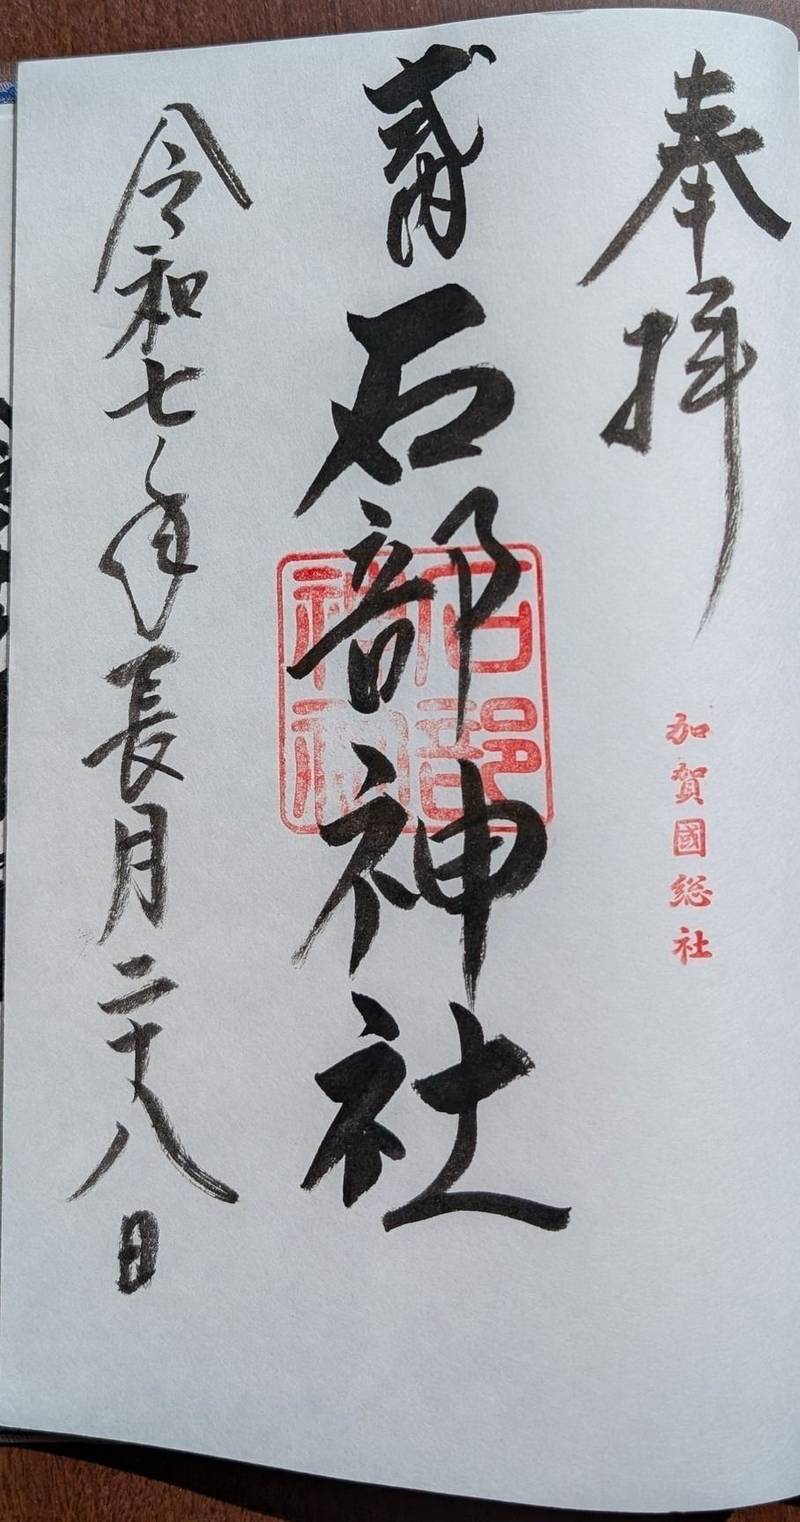 奉拝
加賀國総社
式内
石部神社
石部神社
令和七年長月二十八日